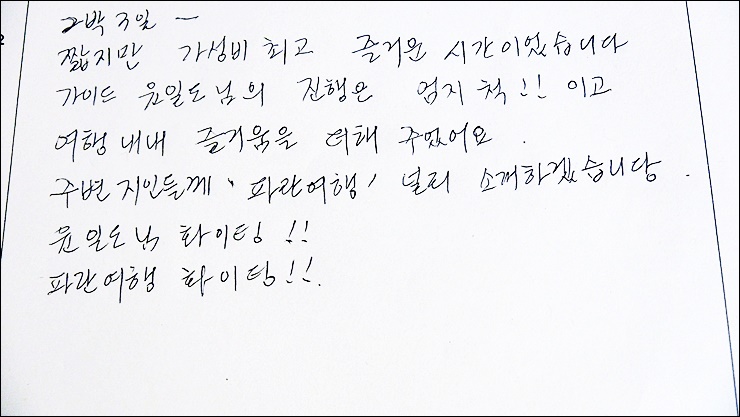 2박 3일 –
짧지만 가성비 최고 즐거운 시간이었습니다
가이드 윤일도님의 진행은 엄지 척!! 이고
여행내내 즐거움을 더해 주었어요.
주변 지인들께 '파란여행' 널리 소개하겠습니당.
윤일도님 화이팅!!
파란여행 화이팅!!.